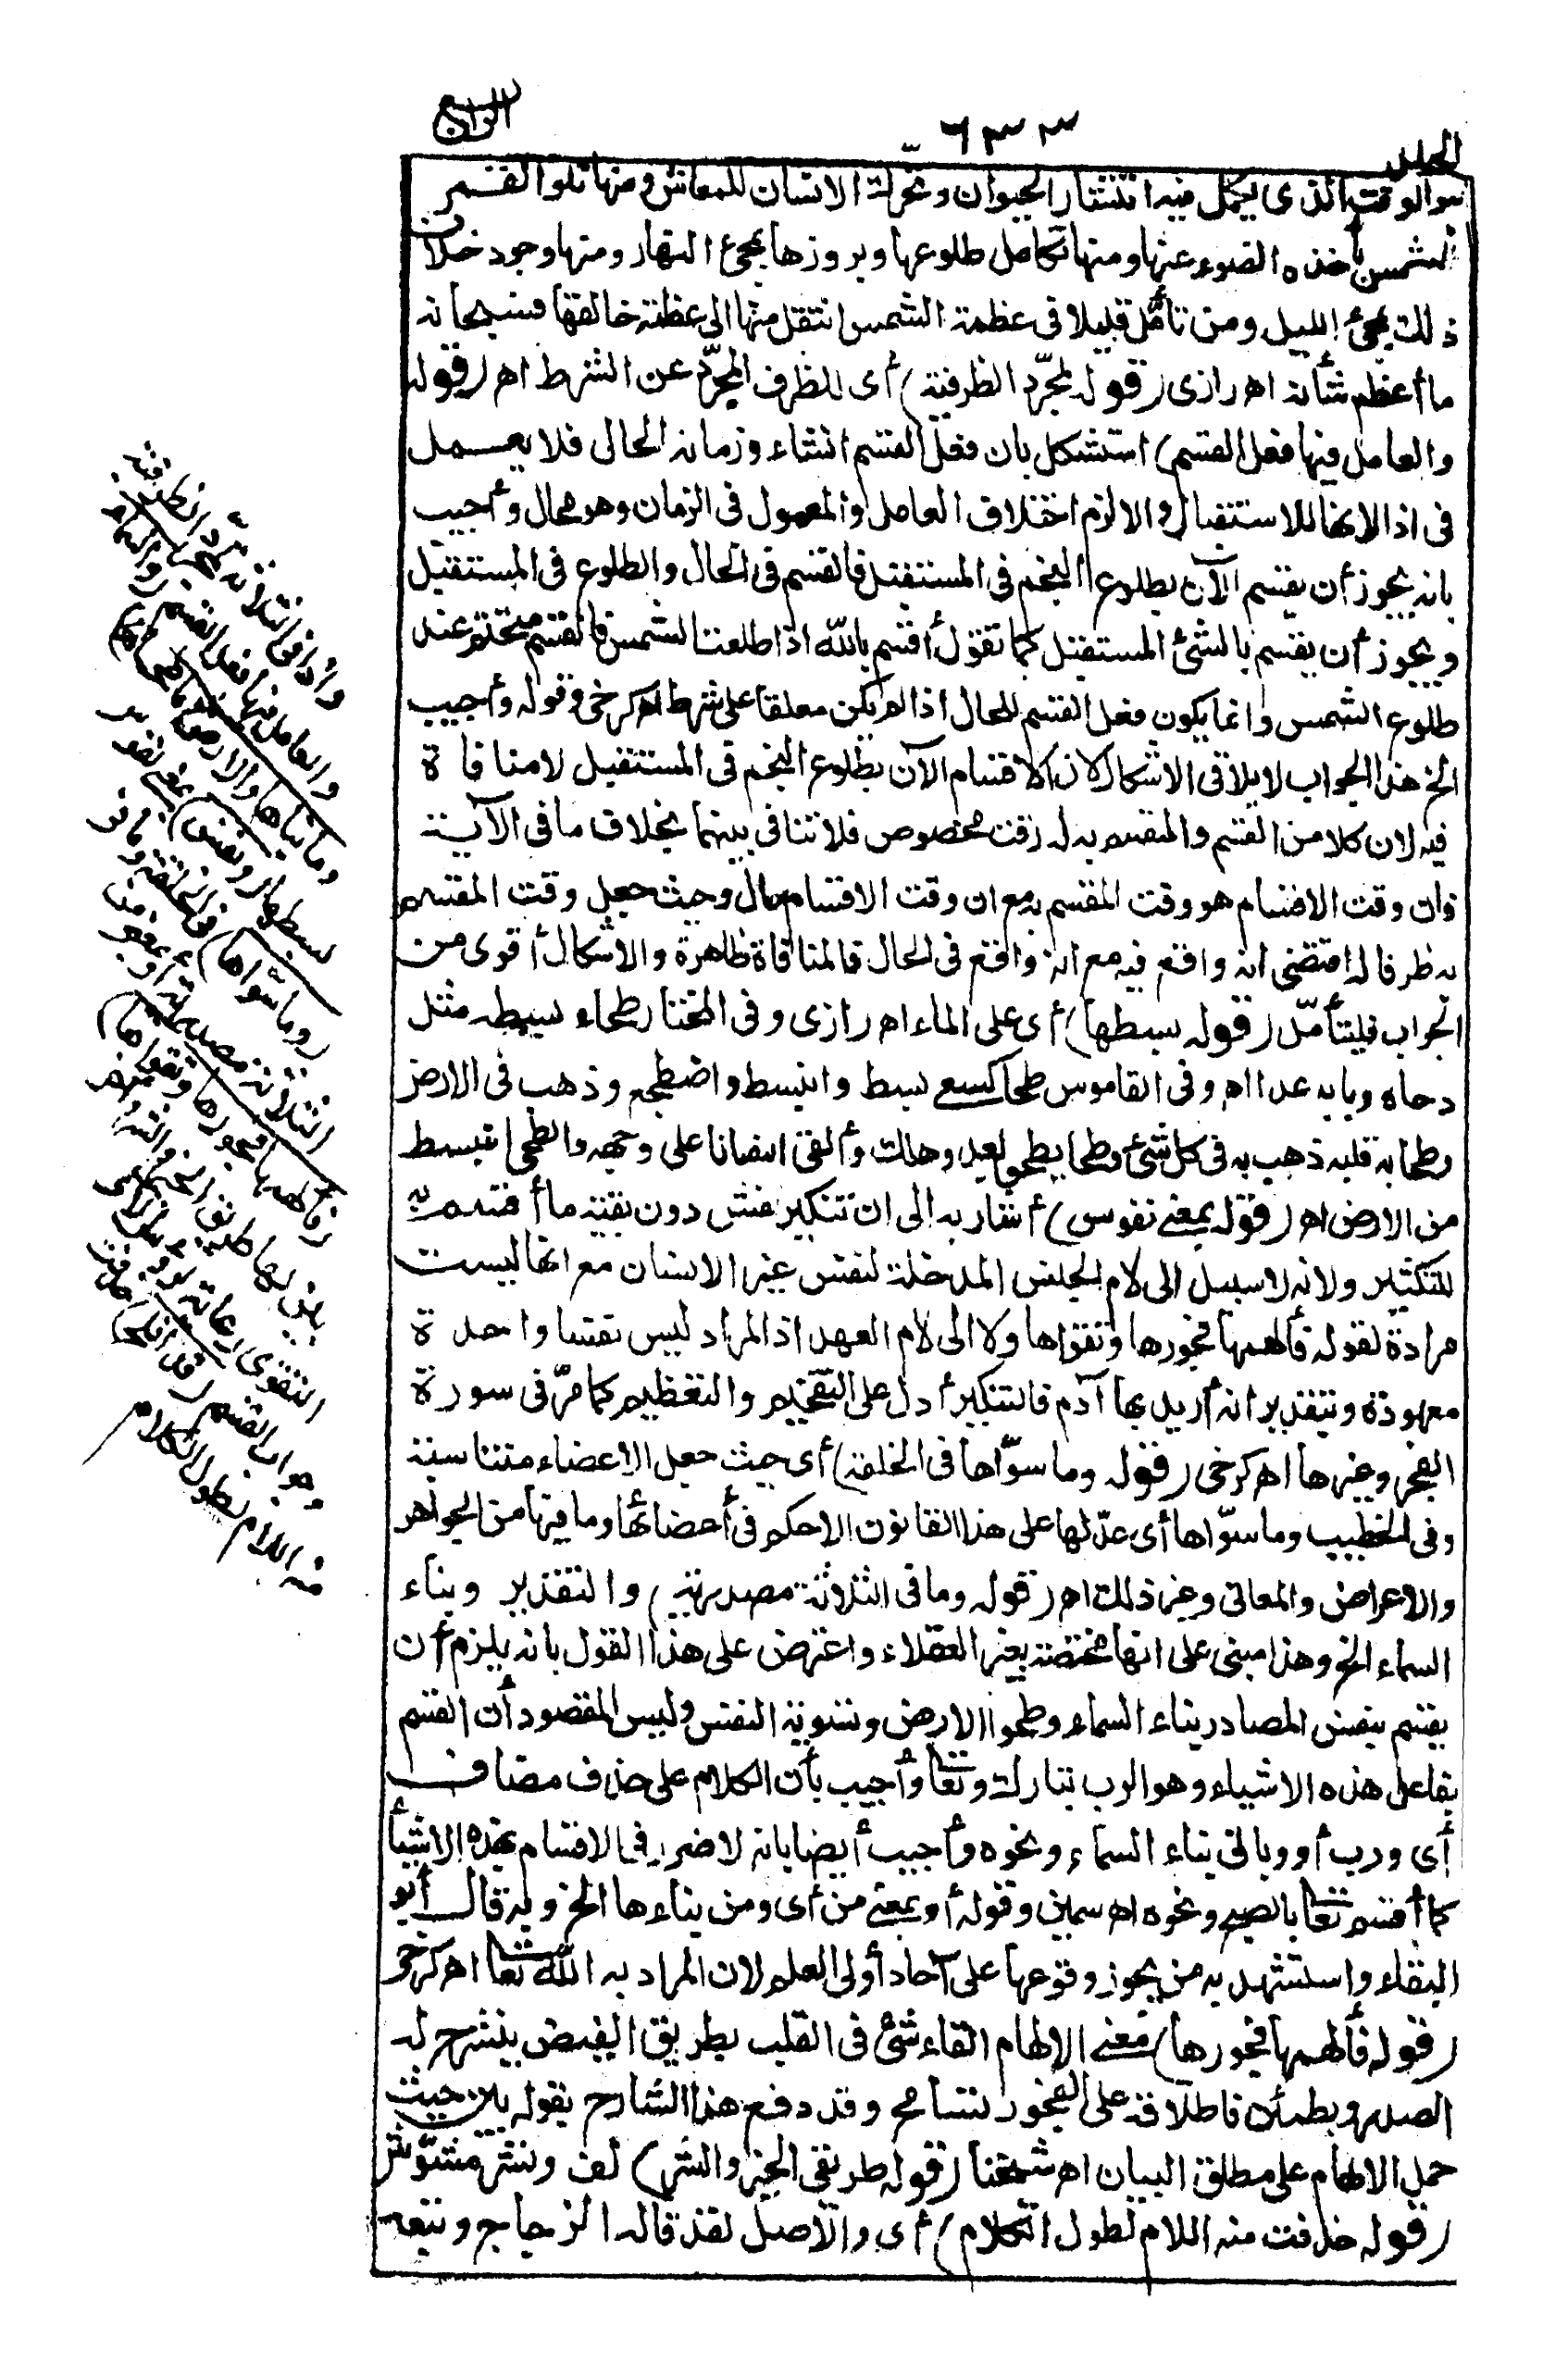 الرابع
٦٣٣
الجمل
هو الوقت الذى يكمل فيه انتشار الحيوان وتحرك الانسان للمعاش ومنها تلو القمر
للشمس بأخذه الضوء عنها ومنها تكامل طلوعها وبروزها بمجئ النهار ومنها وجود خلاف
ذلك بمجئ الليل ومن تأمل قليلا فى عظمة الشمس انتقل منها الى عظمة خالقها فسبحانه
ما أعظم شأنه اهـ رازى (قوله لمجرّد الظرفية) أى للظرف المجرّد عن الشرط اهـ (قوله
والعامل فيها فعل القسم) استشكل بان فعل القسم انشاء وزمانه الحال فلا يعمل
فى اذا لانها للاستقبال والا لزم اختلاف العامل والمعمول فى الزمان وهو محال وأجيب
بانه يجوز أن يقسم الآن بطلوع النجم فى المستقبل فالقسم فى الحال والطلوع فى المستقبل
ويجوز أن يقسم بالشئ المستقبل كما تقول أقسم بالله اذا طلعت الشمس فالقسم متحتم عند
طلوع الشمس وانما يكون فعل القسم للحال اذا لم يكن معلقا على شرط اهـ كرخى وقوله وأجيب
الخ هذا الجواب لا يلاقى الاشكال لان الاقسام الآن بطلوع النجم فى المستقبل لا منافاة
فيه لان كلا من القسم والمقسم به له وقت مخصوص فلا تنافى بينهما بخلاف ما فى الآية
فان وقت الاقسام هو وقت المقسم به مع ان وقت الاقسام حال وحيث جعل وقت المقسم
به ظرفا له اقتضى انه واقع فيه مع انه واقع فى الحال فالمنافاة ظاهرة والاشكال أقوى من
الجواب فليتأمّل (قوله بسطها) أى على الماء اهـ رازى وفى المختار طحاه بسطه مثل
دحاه وبابه عدا اهـ وفى القاموس طحا كسعى بسط وانبسط واضطجع وذهب فى الارض
وطحا به قلبه ذهب به فى كل شئ وطحا يطحو بعد وهلك وألقى انسانا على وجهه والطحى المنبسط
من الارض اهـ (قوله بمعنى نفوس) أشار به الى ان تنكير نفس دون بقية ما أقسم به
للتكثير ولانه لا سبيل الى لام الجنس المدخلة لنفس غير الانسان مع انها ليست
مرادة لقوله فألهمها فجورها وتقواها ولا الى لام العهد اذ المراد ليس نفسا واحدة
معهودة وبتقدير انه أريد بها آدم فالتنكير أدل على التفخيم والتعظيم كما مرّ فى سورة
الفجر وغيرها اهـ كرخى (قوله وما سوّاها فى الخلقة) أى حيث جعل الاعضاء متناسبة
وفى الخطيب وما سوّاها أى عدّلها على هذا القانون الاحكم فى أعضائها وما فيها من الجواهر
والاعراض والمعانى وغير ذلك اهـ (قوله وما فى الثلاثة مصدرية) والتقدير وبناء
السماء الخ وهذا مبنى على انها مختصة بغير العقلاء واعترض على هذا القول بانه يلزم أن
يقسم بنفس المصادر بناء السماء وطحو الارض وتسوية النفس وليس المقصود أن القسم
بفاعل هذه الاشياء وهو الرب تبارك وتعا وأجيب بأن الكلام على حذف مضاف
أى ورب أو وبانى بناء السماء ونحوه وأجيب أيضا بانه لا ضرر فى الاقسام بهذه الاشيأ
كما أقسم تعا بالصبح ونحوه اهـ سمين وقوله أو بمعنى من أى ومن بناها الخ وبه قال أبو
البقاء واستشهد به من يجوز وقوعها على آحاد أولى العلم لان المراد به الله تعا اهـ كرخى
(قوله فألهمها فجورها) معنى الالهام القاء شئ فى القلب بطريق الفيض ينشرح له
الصدر ويطمئن فاطلاقه على الفجور تسامح وقد دفع هذا الشارح بقوله بين حيث
حمل الالهام على مطلق البيان اهـ شيخنا (قوله طريقى الخير والشر) لف ونشر مشوّش
(قوله حذفت منه اللام لطول الكلام) أى والاصل لقد قاله الزجاج وتبعه
واذا فى الثلاثة لمجرد الظرفية
والعامل فيها فعل القسم (والسماء
وما بناها والارض وما طحاها)
بسطها (ونفس) بمعنى نفوس
(وما سوّاها) فى الخلقة وما فى
الثلاثة مصدرية أو بمعنى من
(فألهمها فجورها وتقواها)
بين لها طريق الخير والشر
التقوى رعاية لرؤس الآى
وجواب القسم (قد أفلح) حذفت
منه اللام لطول الكلام